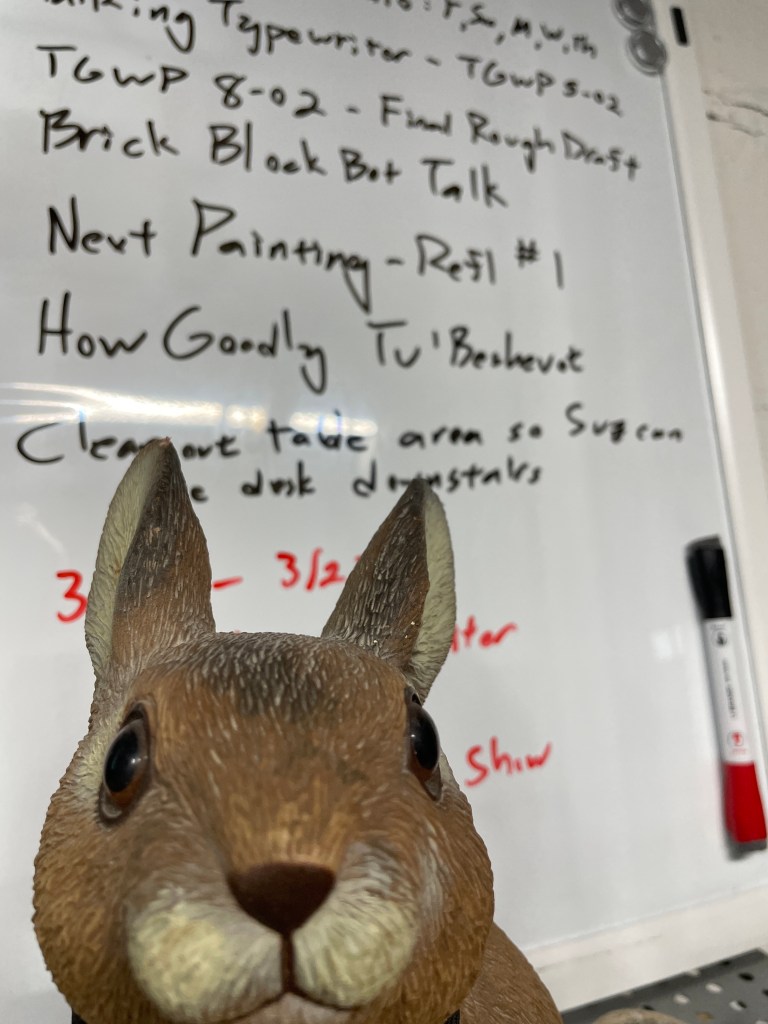 T, Su, M, W, Th
Typewriter - TGWP 5-02
TGWP 8-02 - Final Rough Draft
Brick Block Bot Talk
Next Painting - Refl #1
How Goodly Tu'Beshevat
Clean out table area so Suz can
desk downstairs
3 - 3/2
show